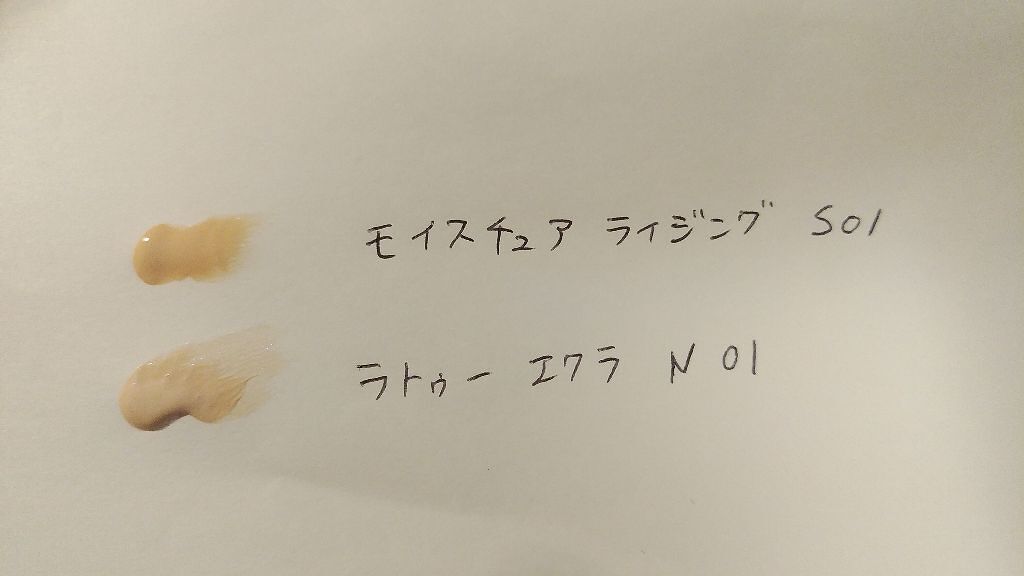 モイスチュア ライジング S01
ラトゥー エクラ N 01